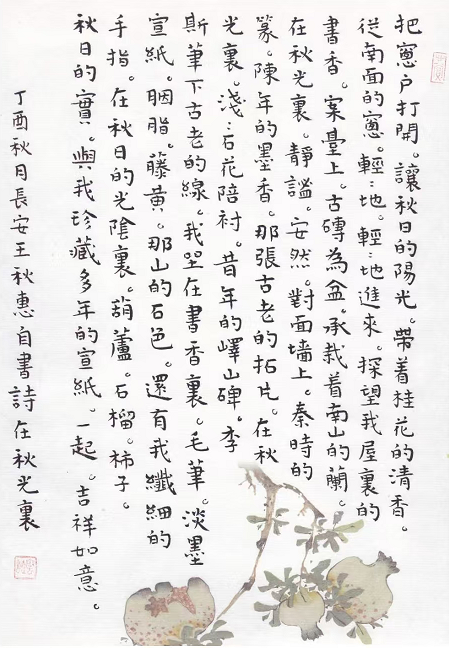 把窻户打開。讓秋日的陽光。帶着桂花的清香。
從南面的窻。輕:地。輕:地進來。探望我屋裏的
書香。案臺上。古磚為盆。承栽着南山的蘭。
在秋光裏。靜謐。安然。對面墻上。秦時的
篆。陳年的墨香。那張古老的拓片。在秋
光裏。淺:石花陪衬。昔年的嶧山碑。李
斯筆下古老的線。我坐在書香裏。毛筆。淡墨
宣紙。胭脂。藤黄。那山的石色。還有我纖細的
手指。在秋日的光陰裏。葫蘆。石榴。柿子。
秋日的實。與我珍藏多年的宣紙。一起。吉祥如意。
丁酉秋月長安王秋惠自書詩在秋光裏